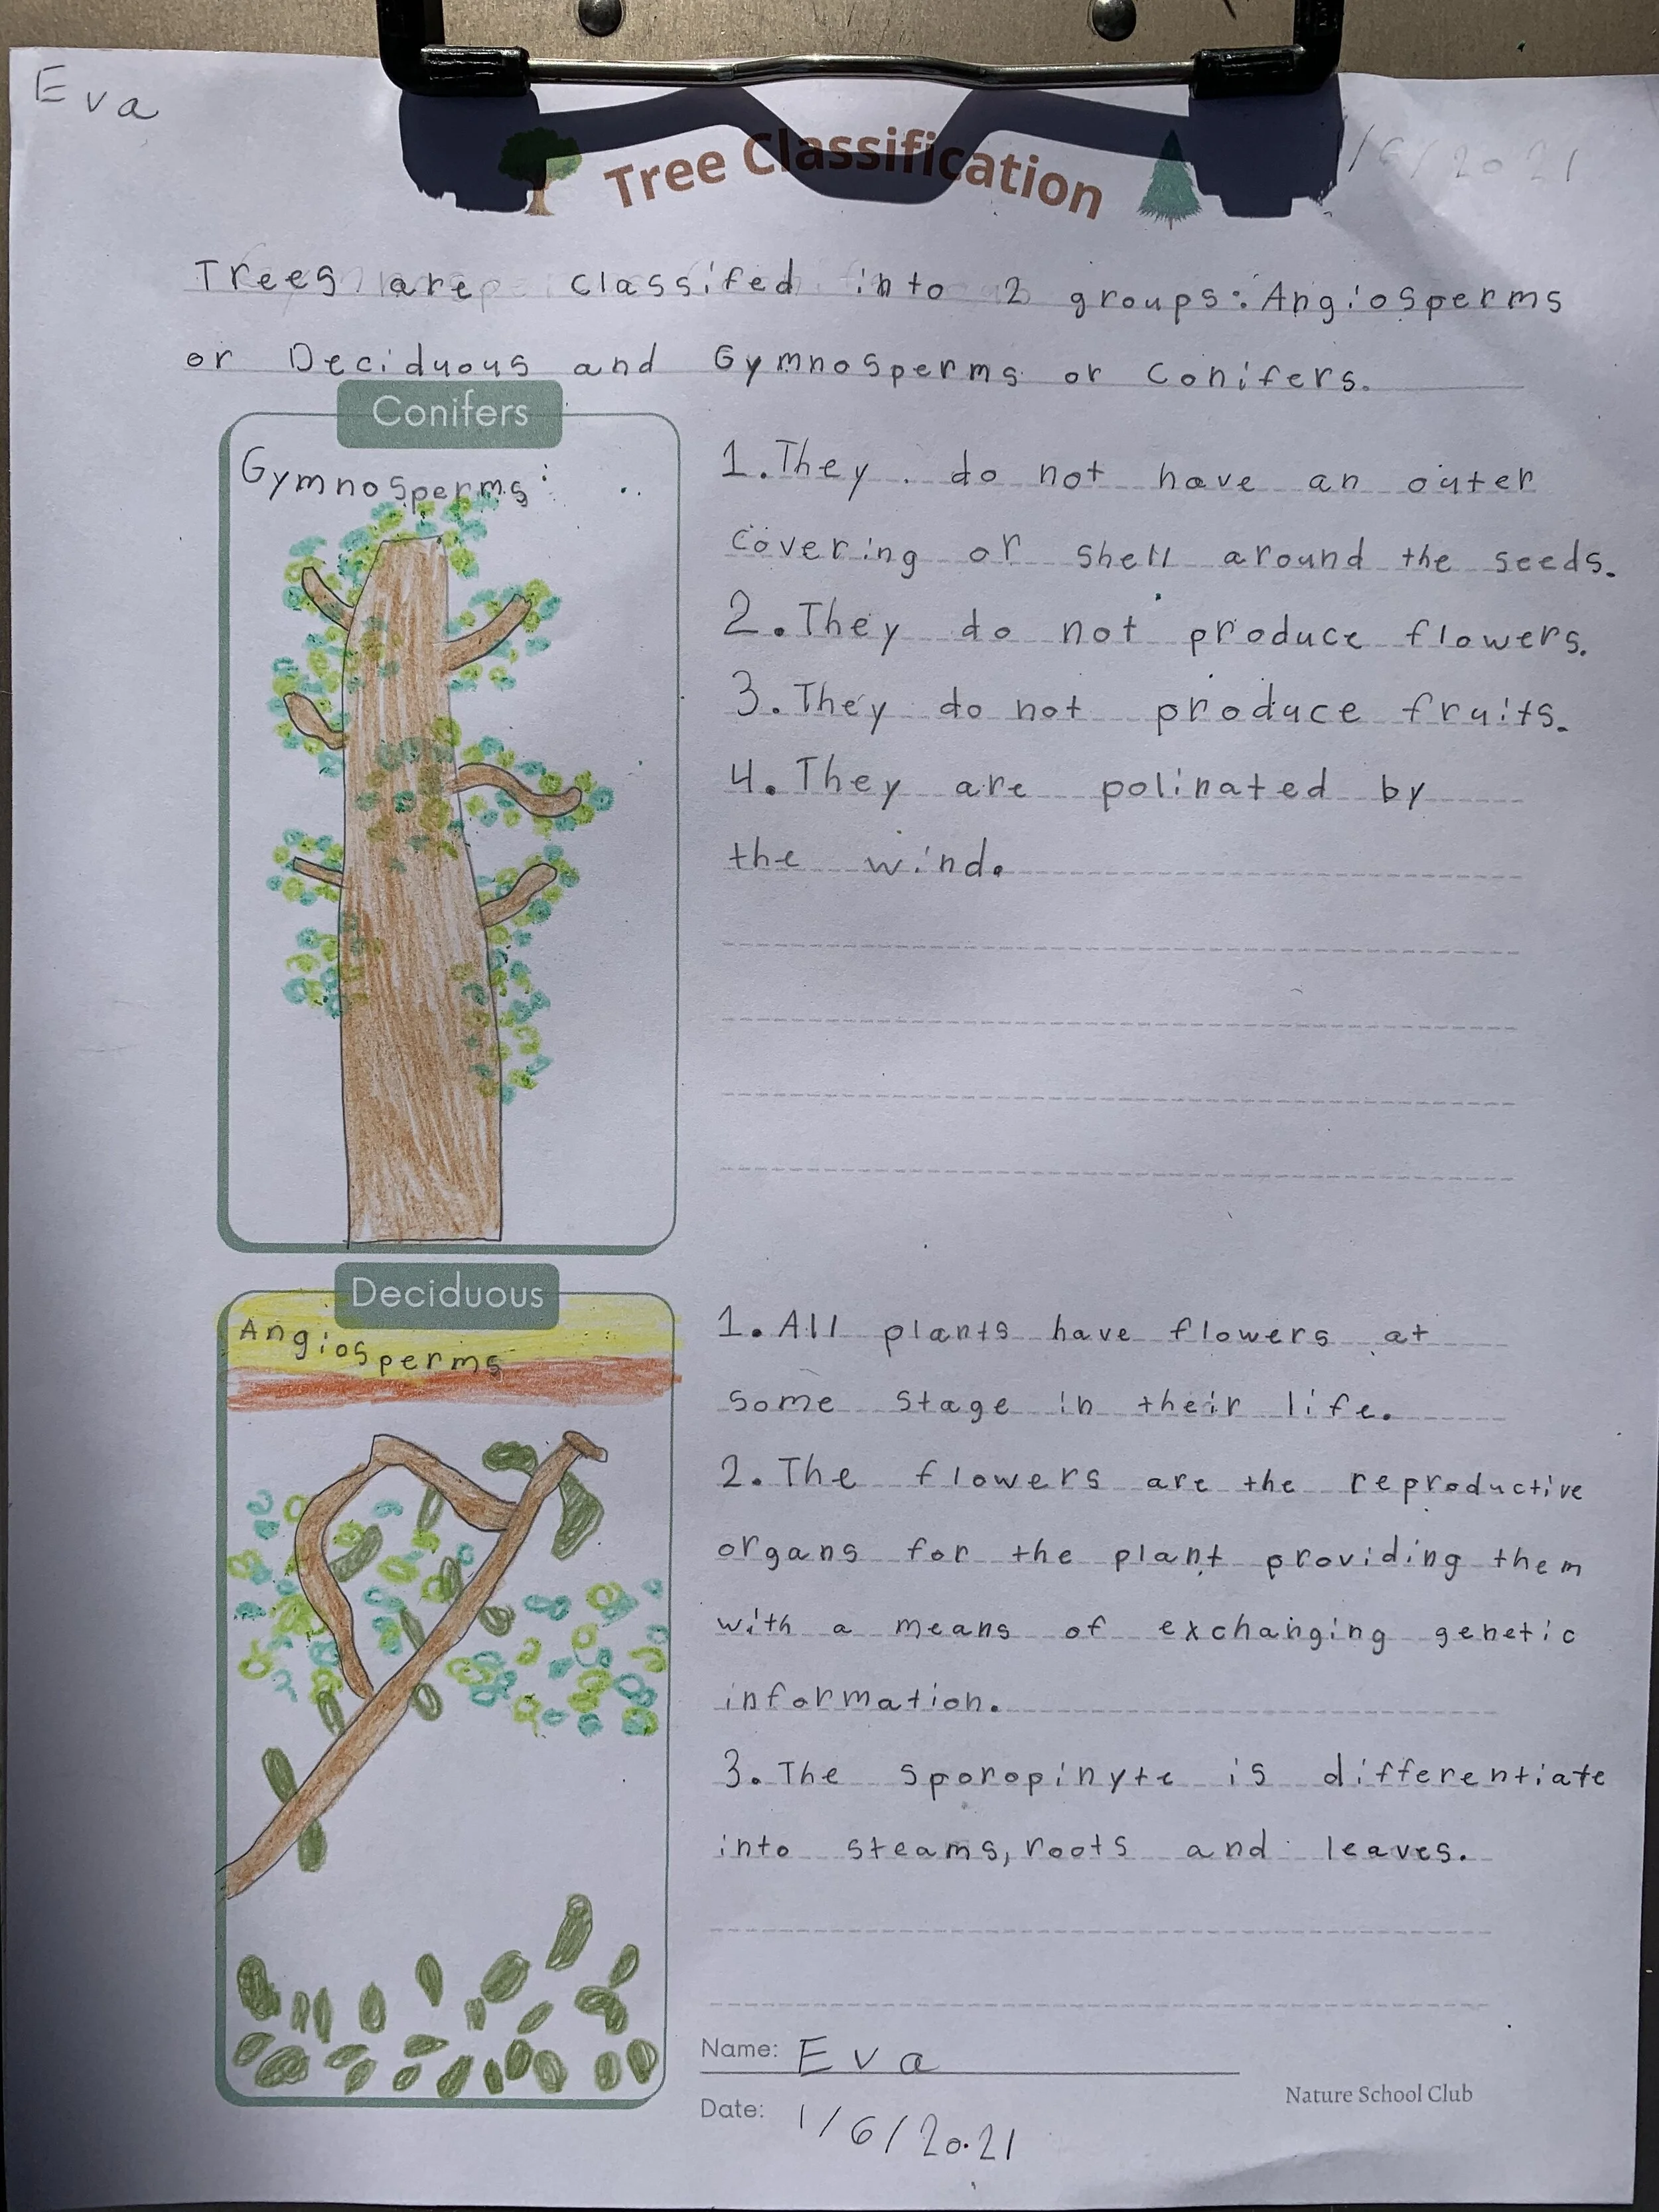 Eva
Tree Classification
1/6/2021
Trees are classifed into 2 groups: Angiosperms
or Deciduous and Gymnosperms or Conifers.
Conifers
Gymnosperms:
1. They do not have an outer
covering or shell around the seeds.
2. They do not produce flowers.
3. They do not produce fruits.
4. They are polinated by
the wind.
Deciduous
Angiosperms
1. All plants have flowers at
some stage in their life.
2. The flowers are the reproductive
organs for the plant providing them
with a means of exchanging genetic
information.
3. The sporopinyte is differentiate
into steams, roots and leaves.
Name: Eva
Nature School Club
Date: 1/6/2021